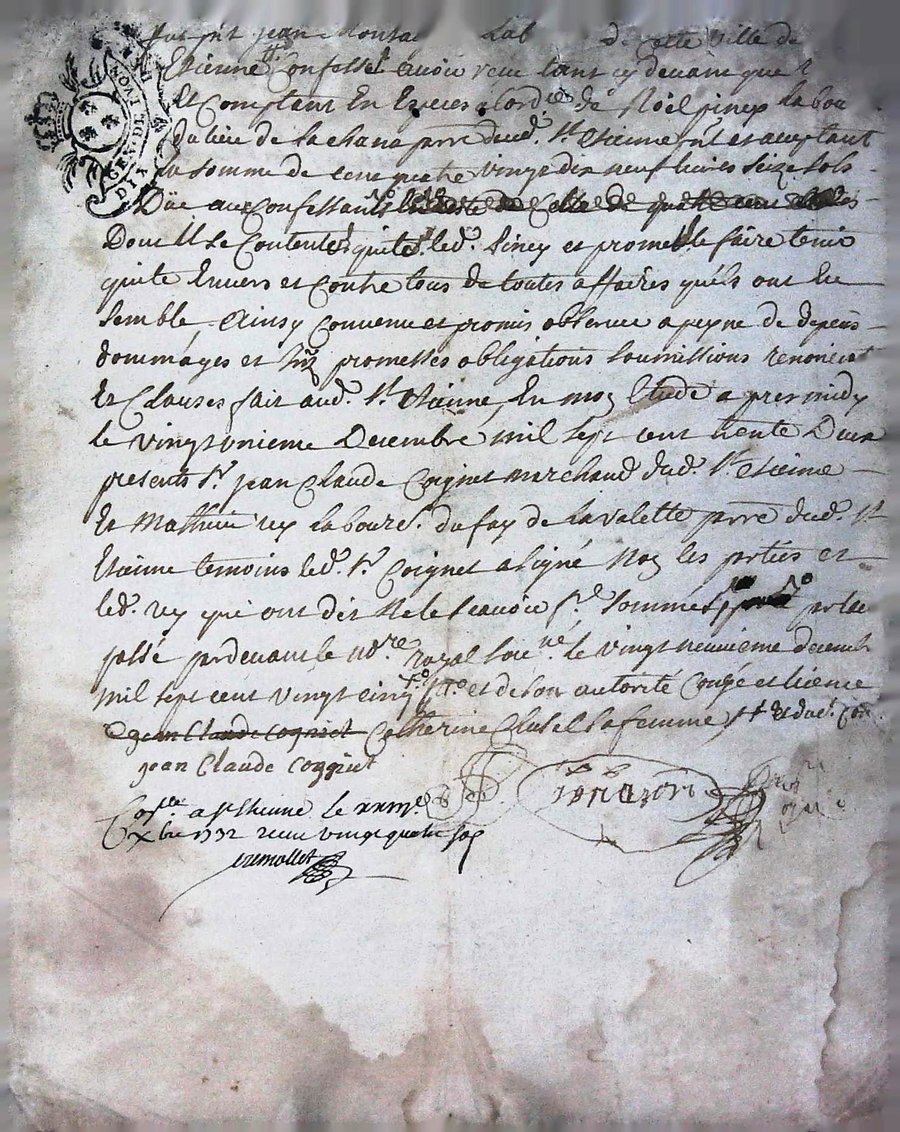 GEN. DE LYON NOUV
fut pnt jean de cette ville de
Etienne Confesse avoir receu tant cy devant que
Et Comptant En Especes de Noël piney labou
du lieu de la chana prre dud. St. Etienne pnt et acceptant
la somme de cent quatre vingt dix neuf livres seize sols
Düe aux Confessants
Dont Il se Contente quite led. Piney et promet le faire tenir
quite Envers et Contre tous de toutes affaires qu'ils ont En
semble Ainsy Convenu et promis observer a peyne de depens
dommâges et promesses obligations soumissions renonciat
Et Clauses fait aud. St. Etienne, En mon Etude apres midy
le vingt onieme Decembre mil sept cent trente Deux
presents Sr. jean Claude Coignet marchand dud. St Etienne
Et Mathieu rey laboure. du fay de la valette prre dud. St
Etienne temoins led. Sr. Coignet a signé Non les parties et
led. rey qui ont dit ne le scavoir sommés
passé pardevant le no.re royal sou.né le vingt neuvieme decemb
mil sept cent vingt cinq et de son autorité Congé et licence
jean Claude cogniet Catherine Clusel sa femme
jean Claude cogniet
Con.lle a St Etienne le xxxme
xbre 1732 receu vingt quatre sols